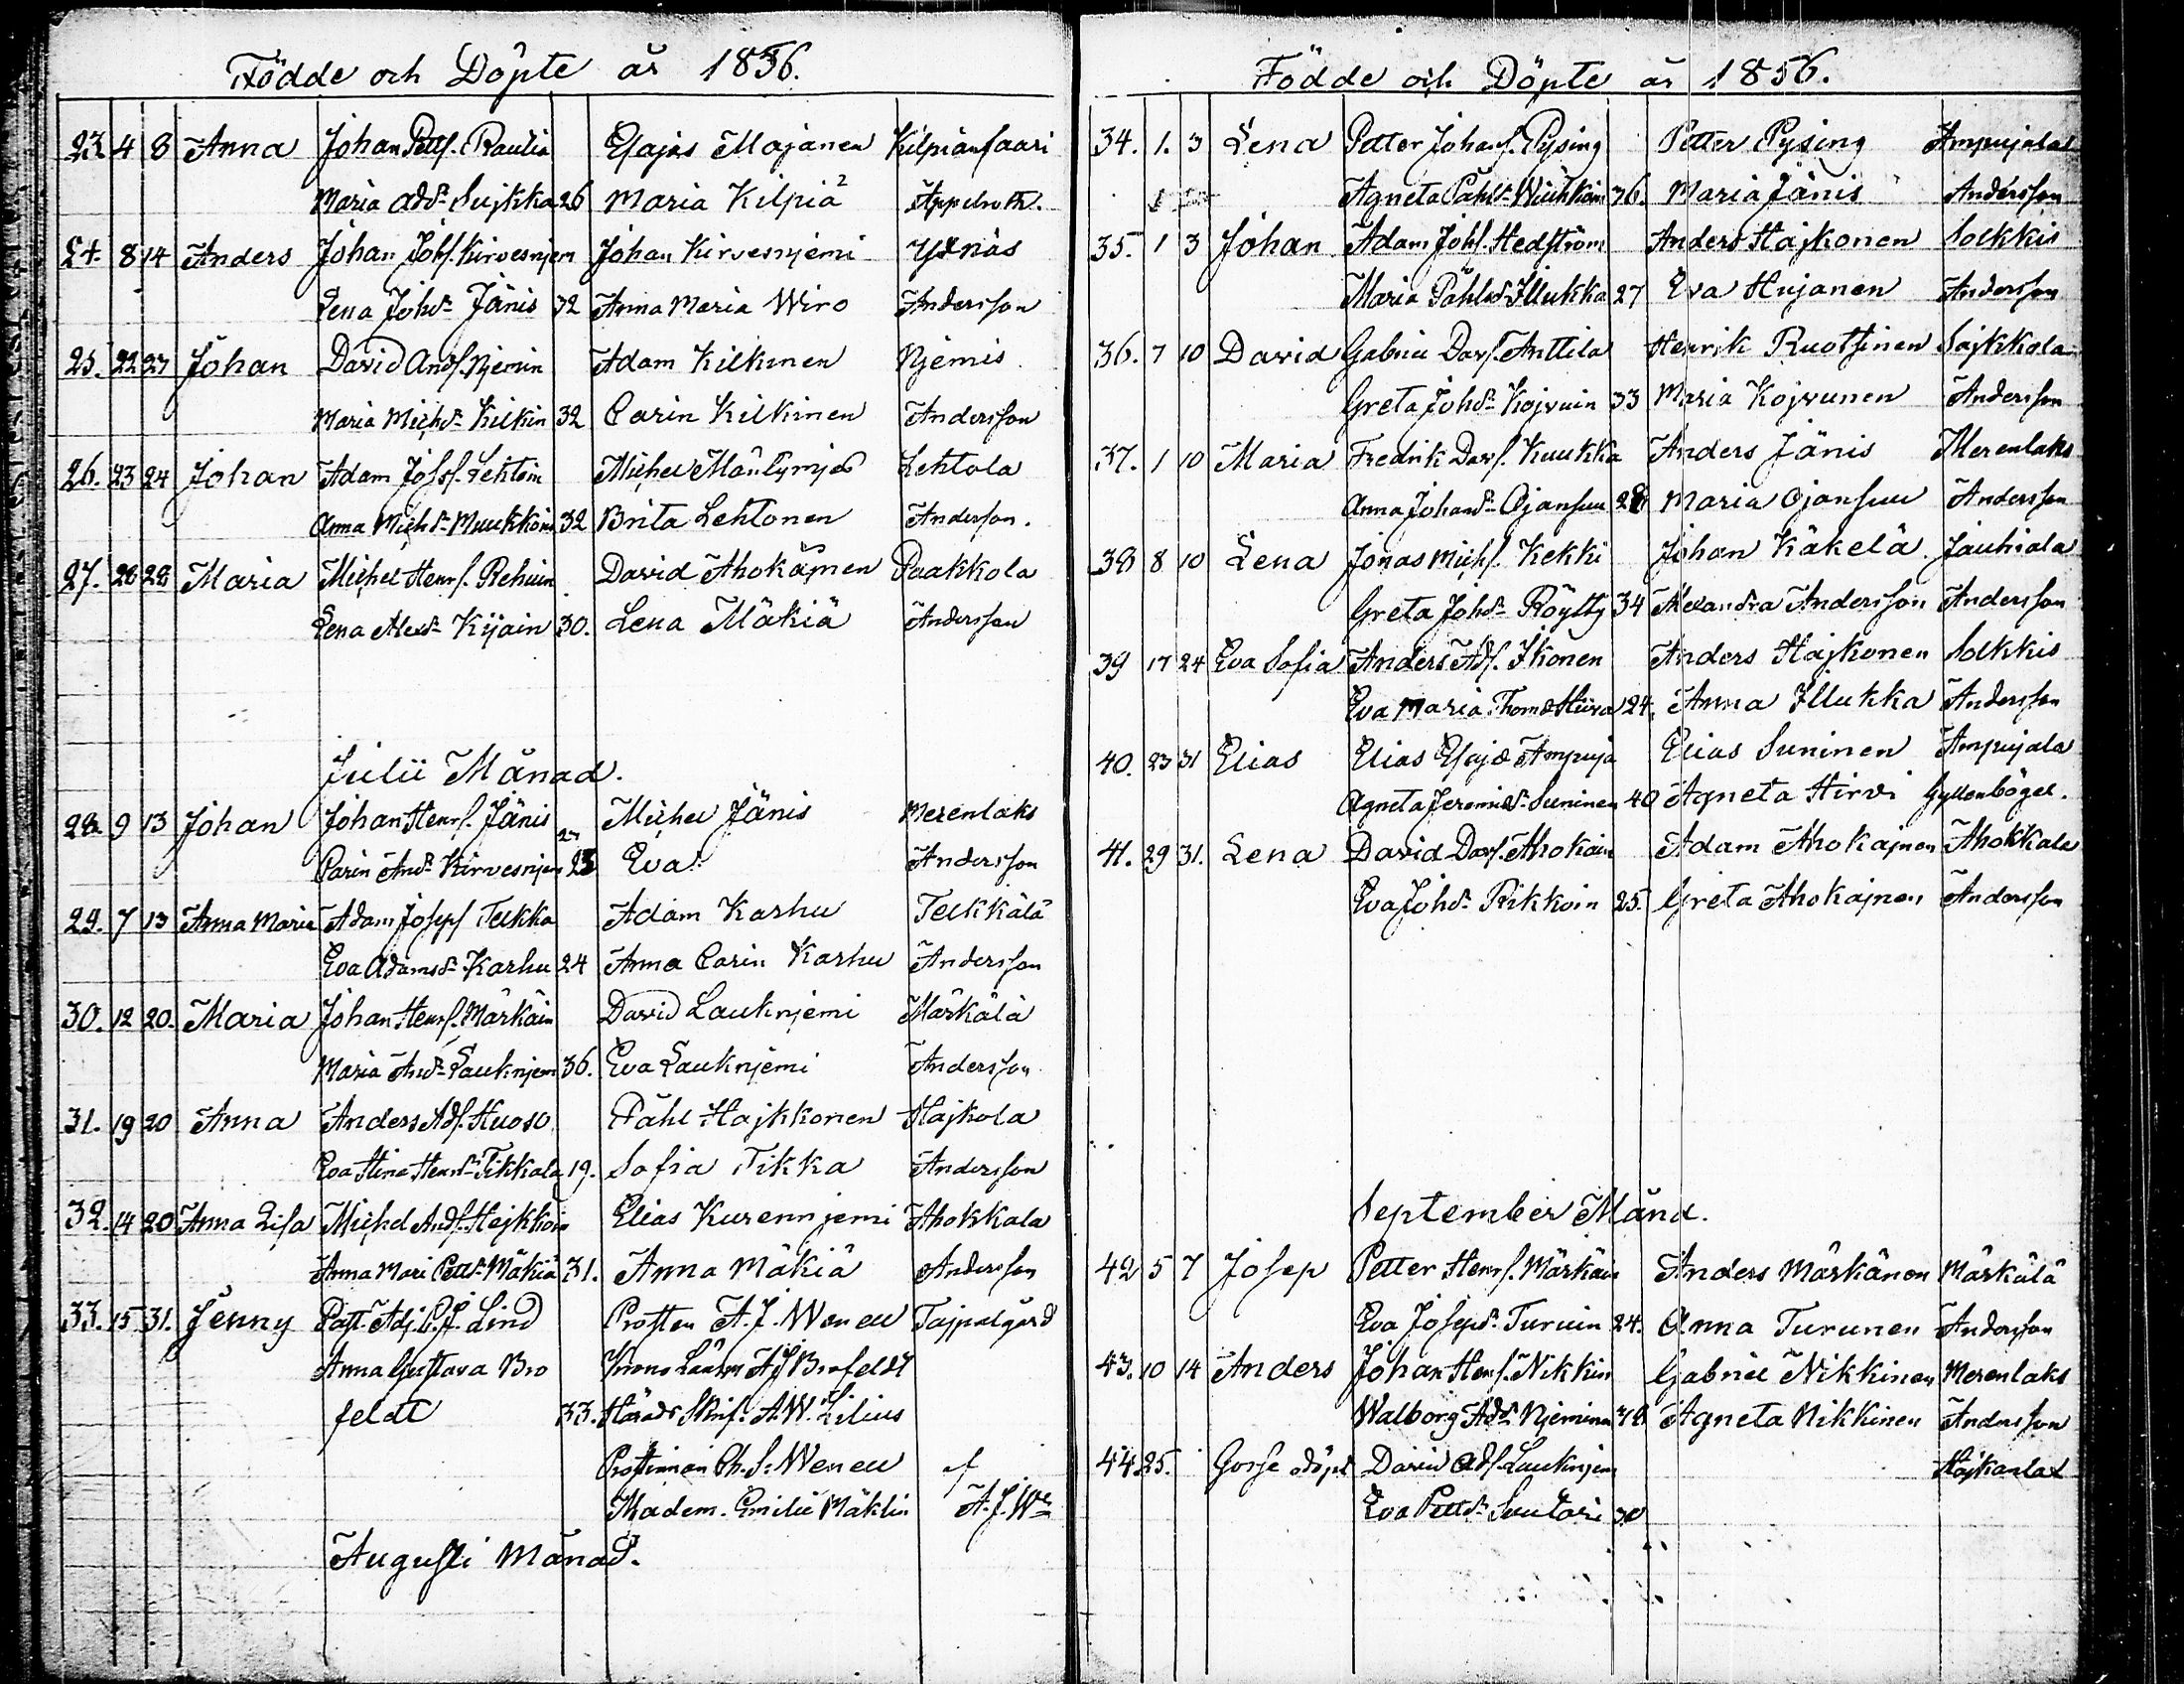 Födde och Döpte år 1856.
23. 4 8 Anna Johan Petts. Raulia Esajas Majanen Kilpiänsaari
Maria Add:r Sujkka 26 Maria Kilpiä Appelroth.
24. 8 14 Anders Johan Johs. Kirvesnjem Johan Kirvesnjemi
Lena Johd:r Jänis 32 Anna Maria Wiro Andersson
25. 22 27 Johan David Ands. Njemin Adam Kilkinen Njemis
Maria Michd:r Kilkin 32 Carin Kilkinen Andersson
26. 23 24 Johan Adam Lehtoin Michel Lehtola
Anna Michd:r Muukkoin 32 Brita Lehtonen Andersson.
27. 28 29 Maria Michel Henrs. Rehuin David Ahokajnen Paakkola
Lena Alexd:r Kijain 30. Lena Mäkiä Andersson
Julii Månad.
28. 9 13 Johan Johan Henrs. Jänis 27 Michel Jänis Merenlaks
Carin And:r Kirvesnjem 23 Eva Andersson
29. 7 13 Anna Maria Adam Joseps Teckka Adam Karhu Teckkälä
Eva Adamsd:r Karhu 24 Anna Carin Karhu Andersson
30. 12 20. Maria Johan Henrs. Märkäin David Lauknjemi Märkälä
Maria And:r Lauknjem 36. Eva Lauknjemi Andersson
31. 19 20 Anna Anders Ads. Huoso Påhl Hajkkonen Hajkola
Eva Stina Henrd:r Tikkala 19. Sofia Tikka Andersson
32. 14 20 Anna Lisa Michel Ands. Hejkkoin Elias Kurennjemi Ahokkala
Anna Mari Pettd:r Mäkiä 31. Anna Mäkiä Andersson
33. 15 31. Jenny Past. Adj. C. J. Lind Prosten A. J. Wenell Tajpalgård
Anna Gustava Bro Krono Länsm A J Brofeldt
feldt 33. Härads Skrif. A. W. Lilius
Prostinnan Ch. S. Wenell af
Madem. Emilie Mäklin A. J. W
Augusti Månad.
Födde och Döpte år 1856.
34. 1. 3 Lena Petter Johans. Pysing Petter Pysing Ampujala
Agneta Påhlsd:r 36. Maria Jänis Andersson
35. 1 3 Johan Adam Johs. Hedström Anders Hajkonen Sockkis
Maria Påhlsd:r Illukka 27 Eva Hujanen Andersson
36. 7 10 David Gabriel Davs. Anttila Henrik Ruotsinen Sajkkola
Greta Johd:r Kojvuin 33 Maria Kojvunen Andersson
37. 1 10 Maria Fredrik Davs. Kuukka Anders Jänis Merenlaks
Anna Johand:r Ojansuu 28 Maria Ojansuu Andersson
38 8 10 Lena Jonas Michs. Kekki Johan Käkelä Jauhiala
Greta Johd:r Röytty 34 Alexandra Andersson Andersson
39 17 24 Eva Sofia Anders Ads. Ikonen Anders Hajkonen Sockkis
Eva Maria Thomd Hiiva 24. Anna Illukka Andersson
40. 23 31 Elias Elias Esajs Ampuja Elias Suninen Ampujala
Agneta Jeremiæd:r Suninen 40 Agneta Hirvi Gyllenbögel.
41. 29 31. Lena David Davs. Ahokain Adam Ahokajnen Ahokkala
Eva Johd:r Rikkoin 25. Greta Ahokajnen Andersson
September Månd.
42 5 7 Josep Petter Henrs. Märkäin Anders Märkänen Märkälä
Eva Josepsd:r Turuin 24. Anna Turunen Andersson
43. 10 14 Anders Johan Henrs. Nikkin Gabriel Nikkinen Merenlaks
Walborg Add:r Njeminen 38 Agneta Nikkinen Andersson
44 25. Gosse odöpt David Ads. Lauknjem Hajkanlax
Eva Pettd:r Suutari 30